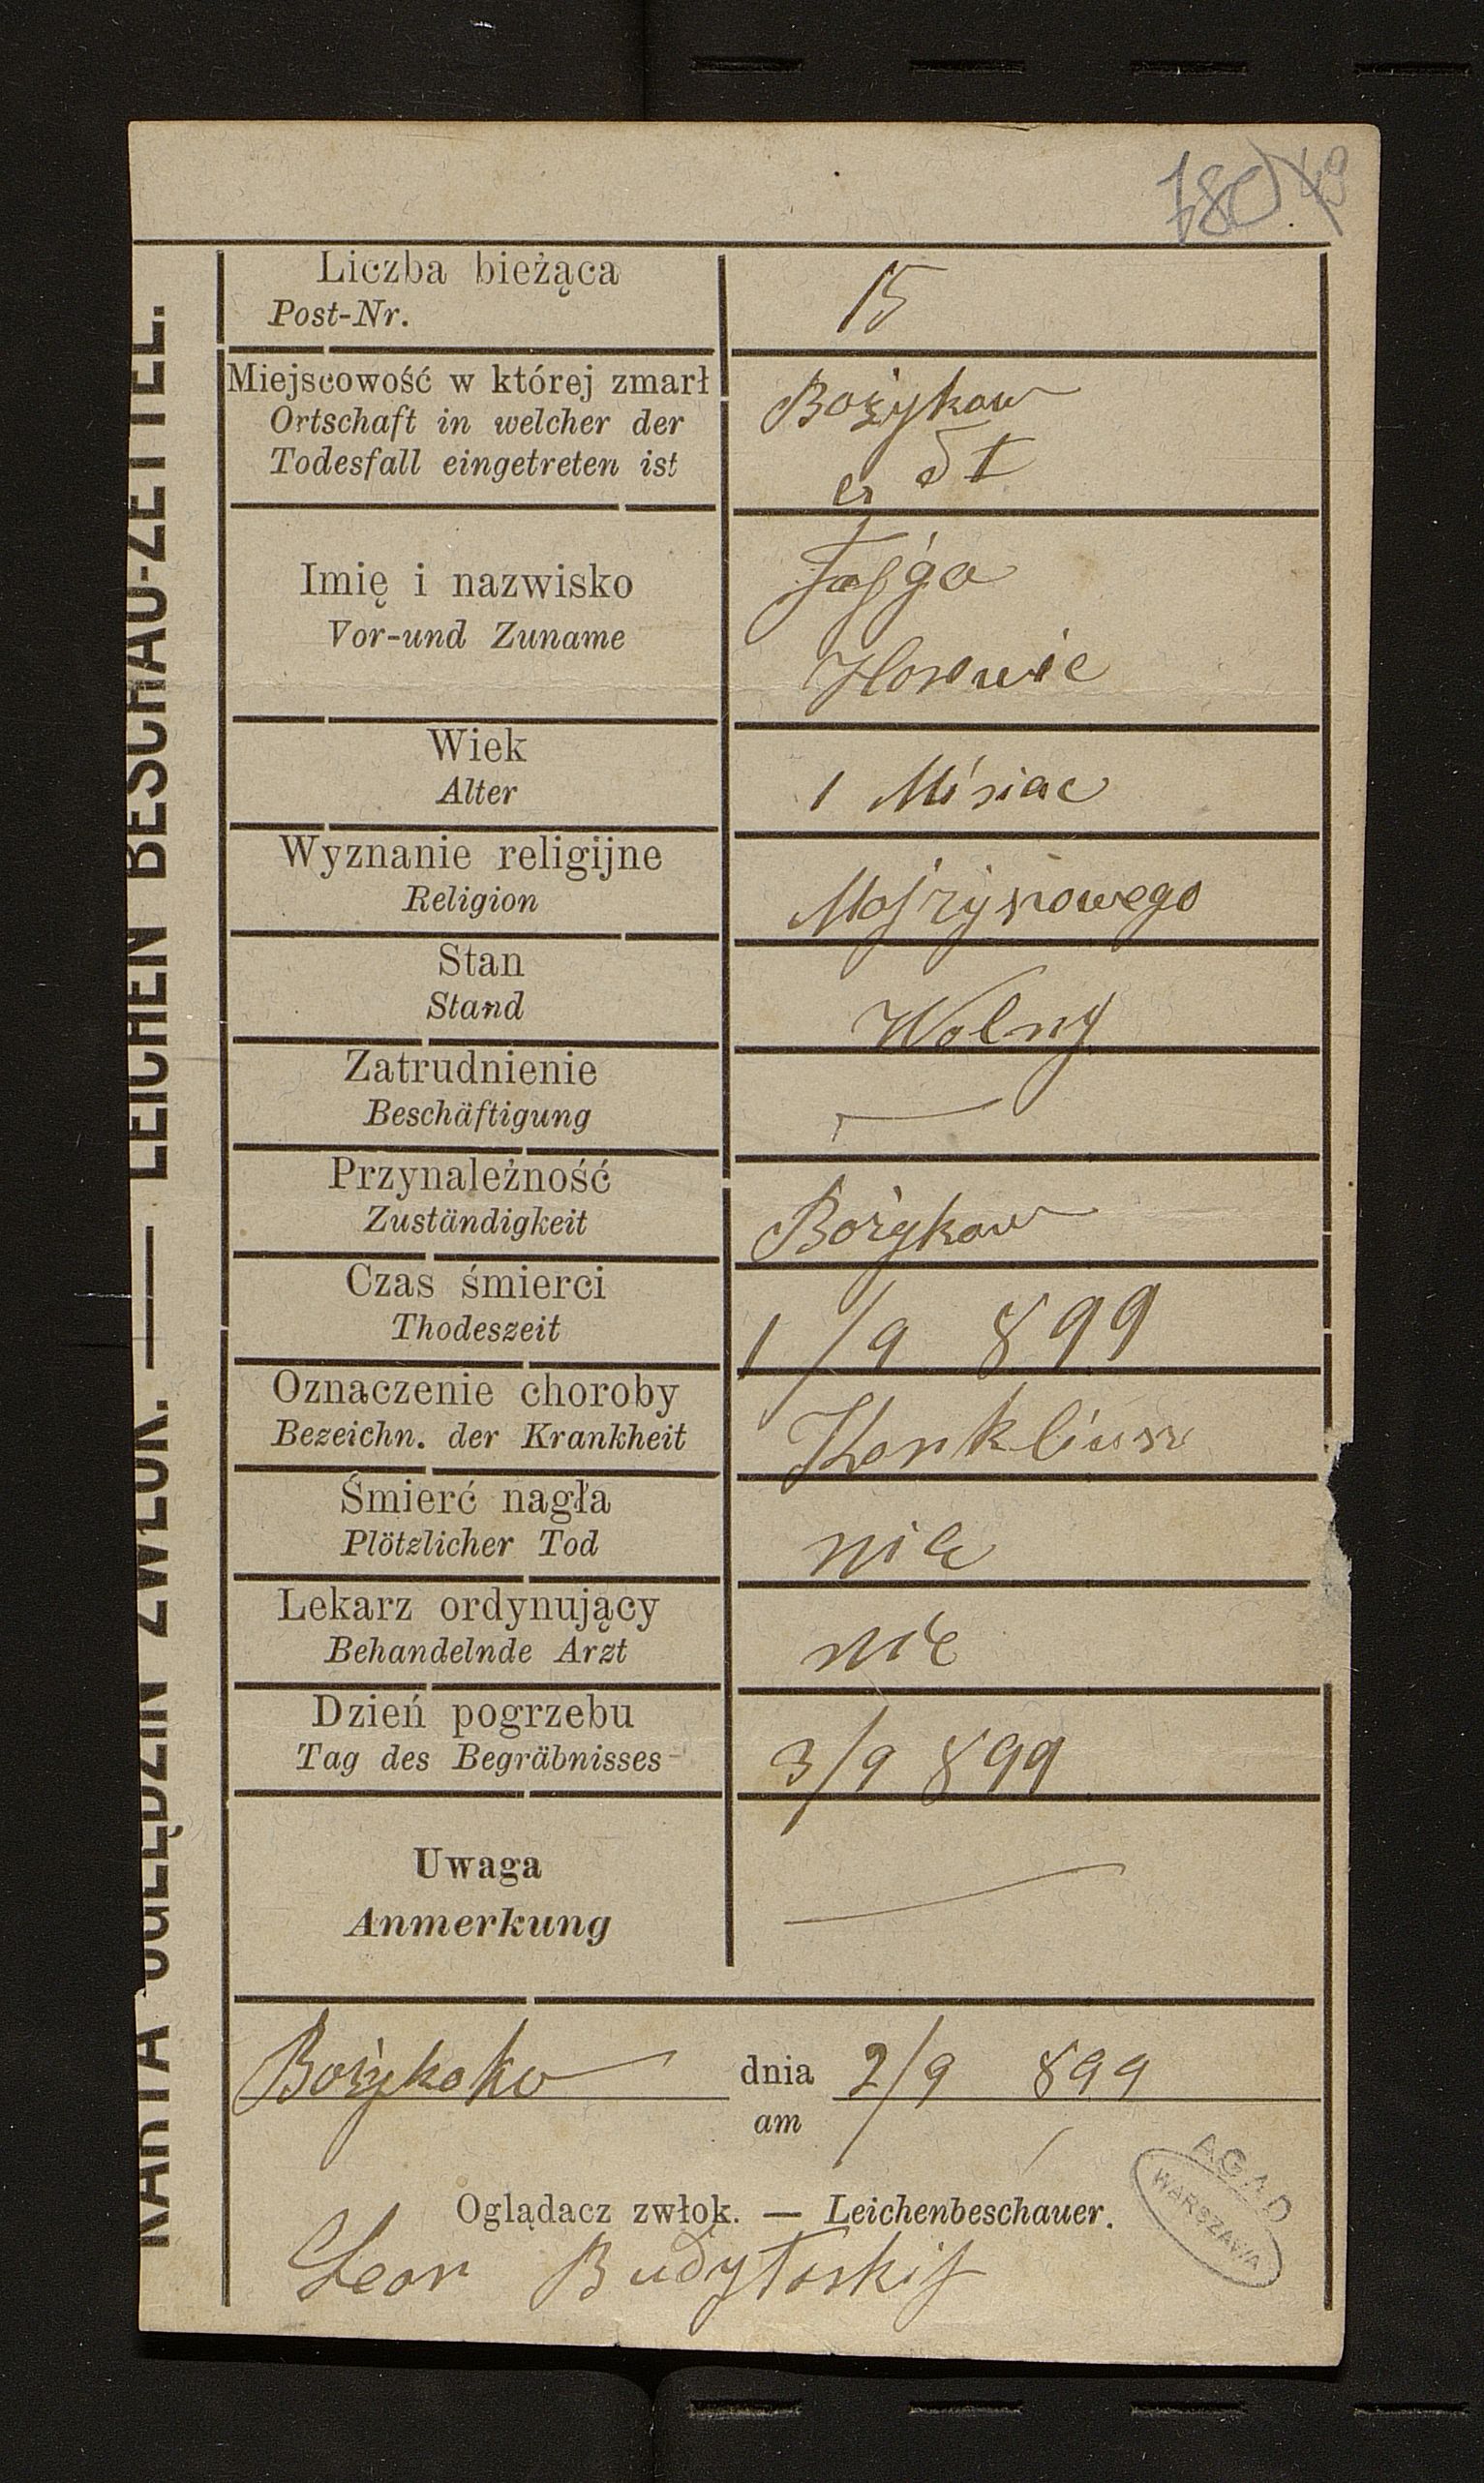 780
KARTA OGLĘDZIN ZWŁOK. — LEICHEN BESCHAU-ZETTEL.
Liczba bieżąca
Post-Nr.
15
Miejscowość w której zmarł
Ortschaft in welcher der
Todesfall eingetreten ist
Bożykow
Imię i nazwisko
Vor-und Zuname
Fajga
Horowic
Wiek
Alter
1 Misiac
Wyznanie religijne
Religion
Mojzyszowego
Stan
Stand
Wolny
Zatrudnienie
Beschäftigung
—
Przynależność
Zuständigkeit
Bożykow
Czas śmierci
Thodeszeit
1/9 899
Oznaczenie choroby
Bezeichn. der Krankheit
Śmierć nagła
Plötzlicher Tod
nie
Lekarz ordynujący
Behandelnde Arzt
nie
Dzień pogrzebu
Tag des Begräbnisses
3/9 899
Uwaga
Anmerkung
—
dnia 2/9 899
am
Oglądacz zwłok. — Leichenbeschauer.
Leon
AGAD
WARSZAWA